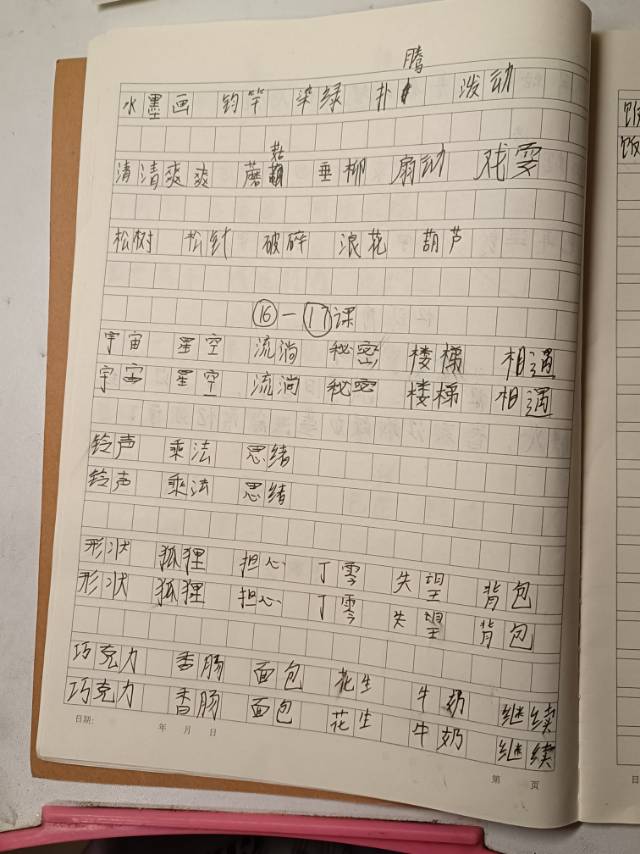 水墨画 钓竿 染绿 扑腾 泼动
清清爽爽 蘑菇 垂柳 扇动 戏耍
松树 松针 破碎 浪花 葫芦
⑯—⑰课
宇宙 星空 流淌 秘密 楼梯 相遇
宇宙 星空 流淌 秘密 楼梯 相遇
铃声 乘法 思绪
铃声 乘法 思绪
形状 狐狸 担心 丁零 失望 背包
形状 狐狸 担心 丁零 失望 背包
巧克力 香肠 面包 花生 牛奶 继续
巧克力 香肠 面包 花生 牛奶 继续
日期: 年 月 日
第 页